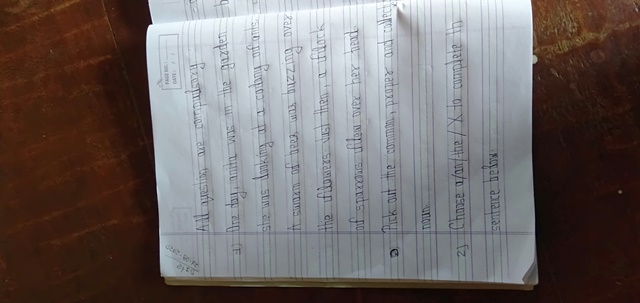 PAGE NO.:
DATE: / /
Date
All question are compulsory
1) One day, anita was in the garden
she was looking at a colony of ants.
A swarm of bees was buzzing over
the flowers Just then, a flock
of sparrows flew over her head.
Pick out the common, proper and collec
noun
2) Choose a/an/the / X to complete th
sentence below.